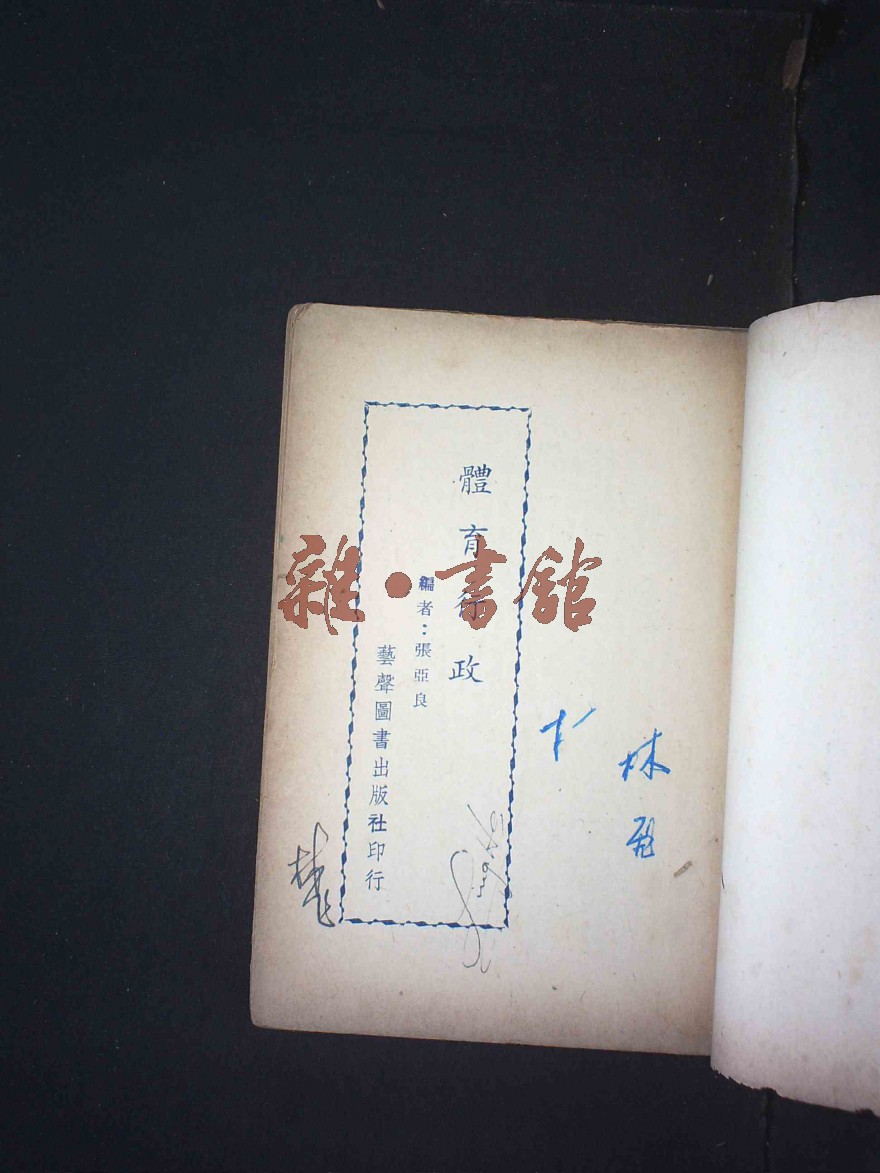 體育行政
編者：張亞良
藝聲圖書出版社印行
雜·書館
林